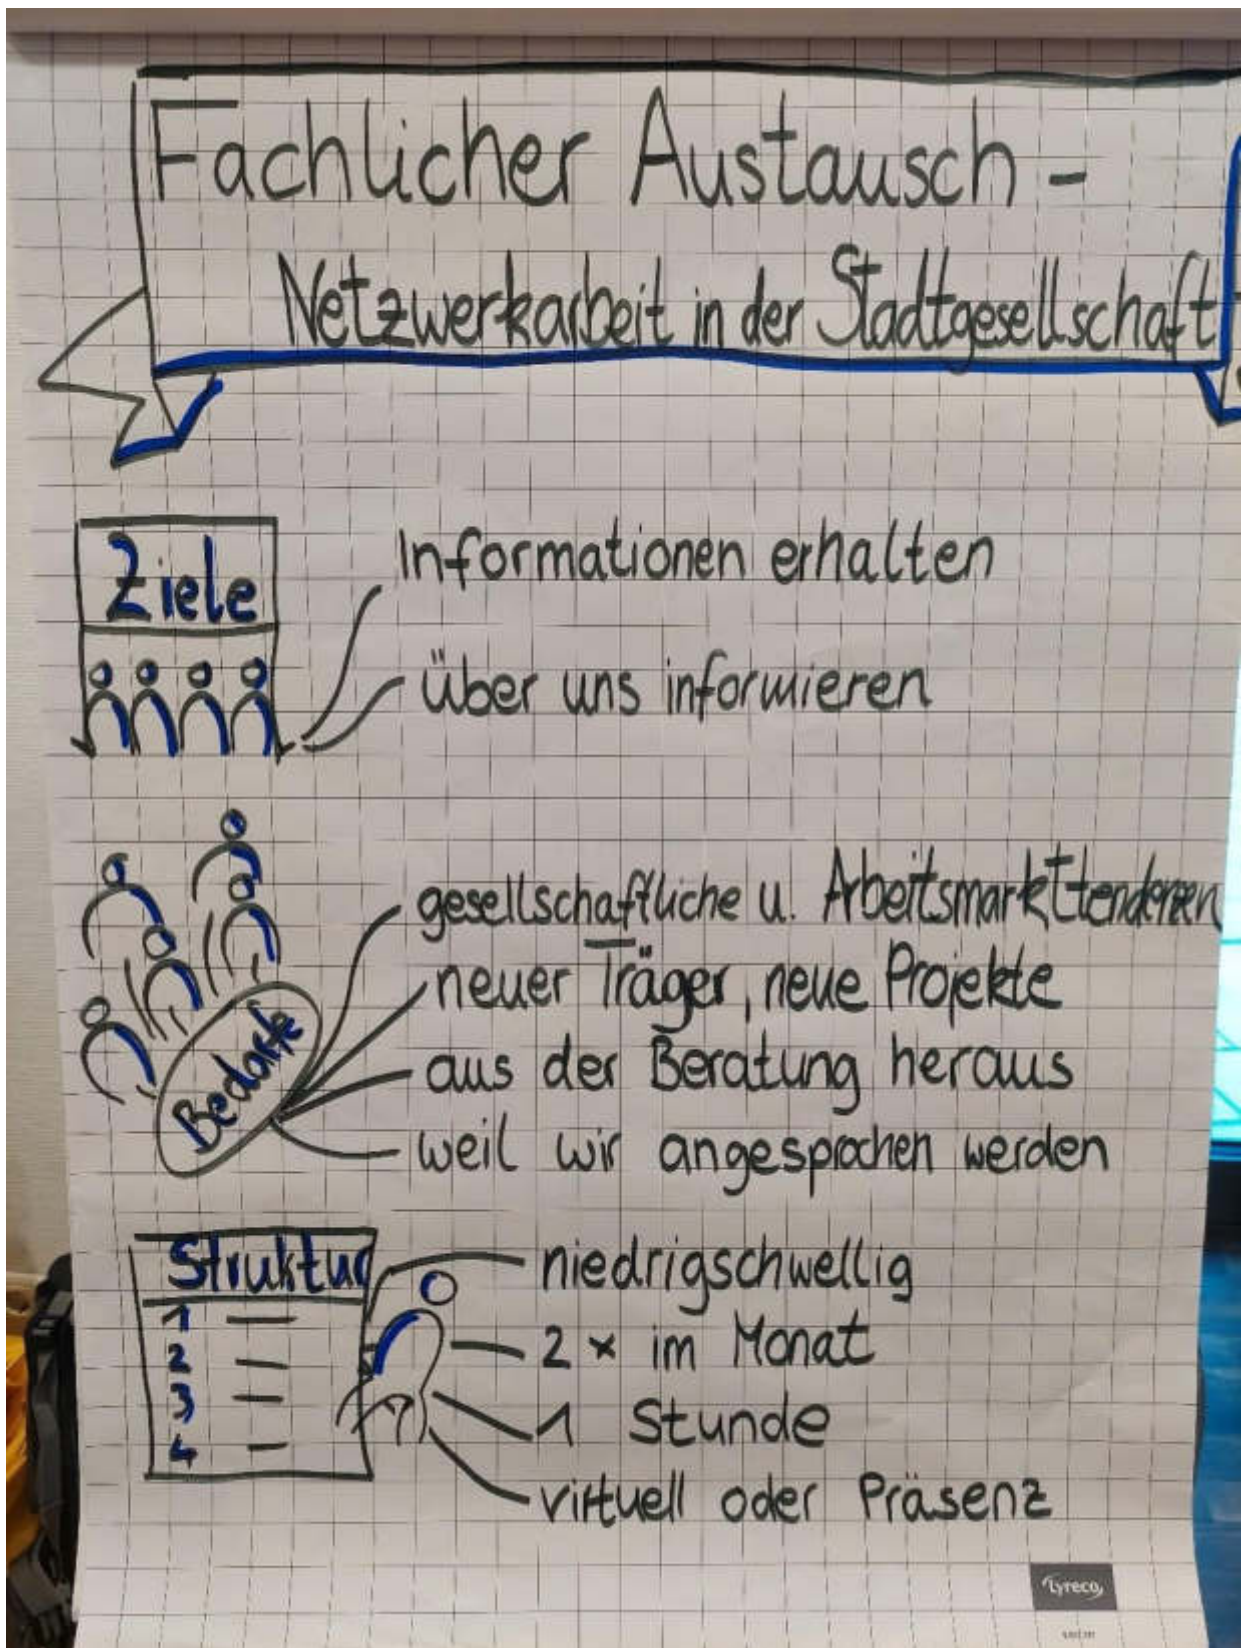 Fachlicher Austausch -
Netzwerkarbeit in der Stadtgesellschaft
Ziele
Informationen erhalten
über uns informieren
Bedarfe
gesellschaftliche u. Arbeitsmarkttendenzen
neuer Träger, neue Projekte
aus der Beratung heraus
weil wir angesprochen werden
Struktur
1
2
3
4
niedrigschwellig
2 x im Monat
1 Stunde
virtuell oder Präsenz
Lyreco